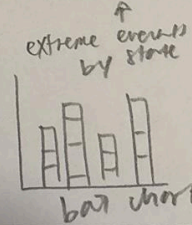 extreme events
by state
bar char